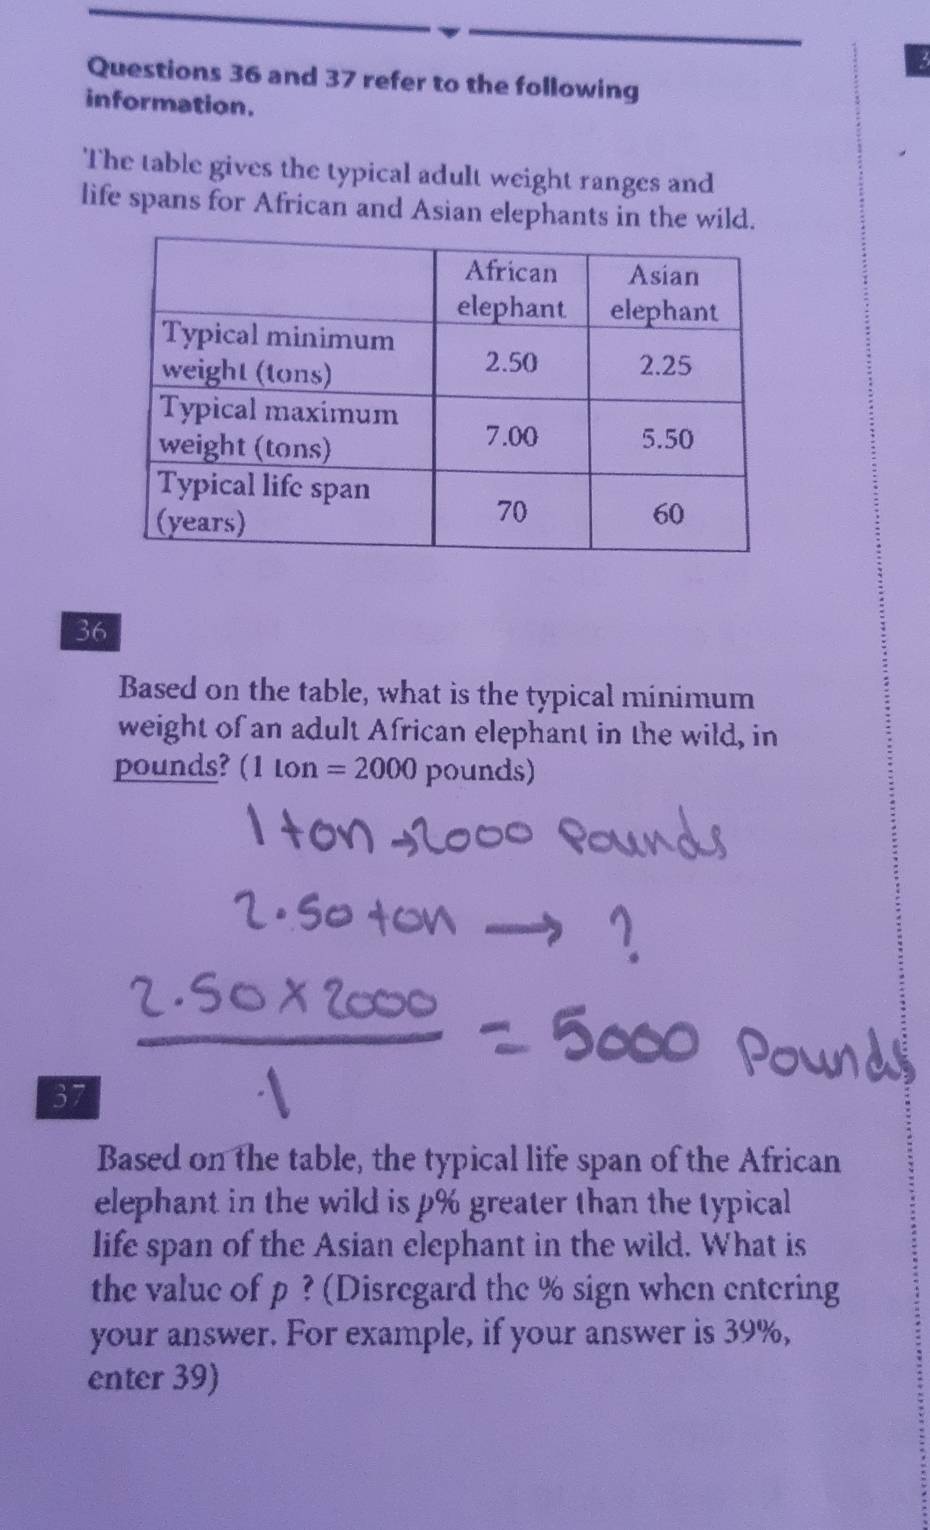 Questions 36 and 37 refer to the following
information.
The table gives the typical adult weight ranges and
life spans for African and Asian elephants in the wild.
African elephant
Asian elephant
Typical minimum weight (tons) 2.50 2.25
Typical maximum weight (tons) 7.00 5.50
Typical life span (years) 70 60
36
Based on the table, what is the typical minimum
weight of an adult African elephant in the wild, in
pounds? (1 ton = 2000 pounds)
1 ton → 2000 Pounds
2.50 ton → ?
2.50 x 2000
= 5000 Pounds
1
37
Based on the table, the typical life span of the African
elephant in the wild is p% greater than the typical
life span of the Asian elephant in the wild. What is
the value of p ? (Disregard the % sign when entering
your answer. For example, if your answer is 39%,
enter 39)